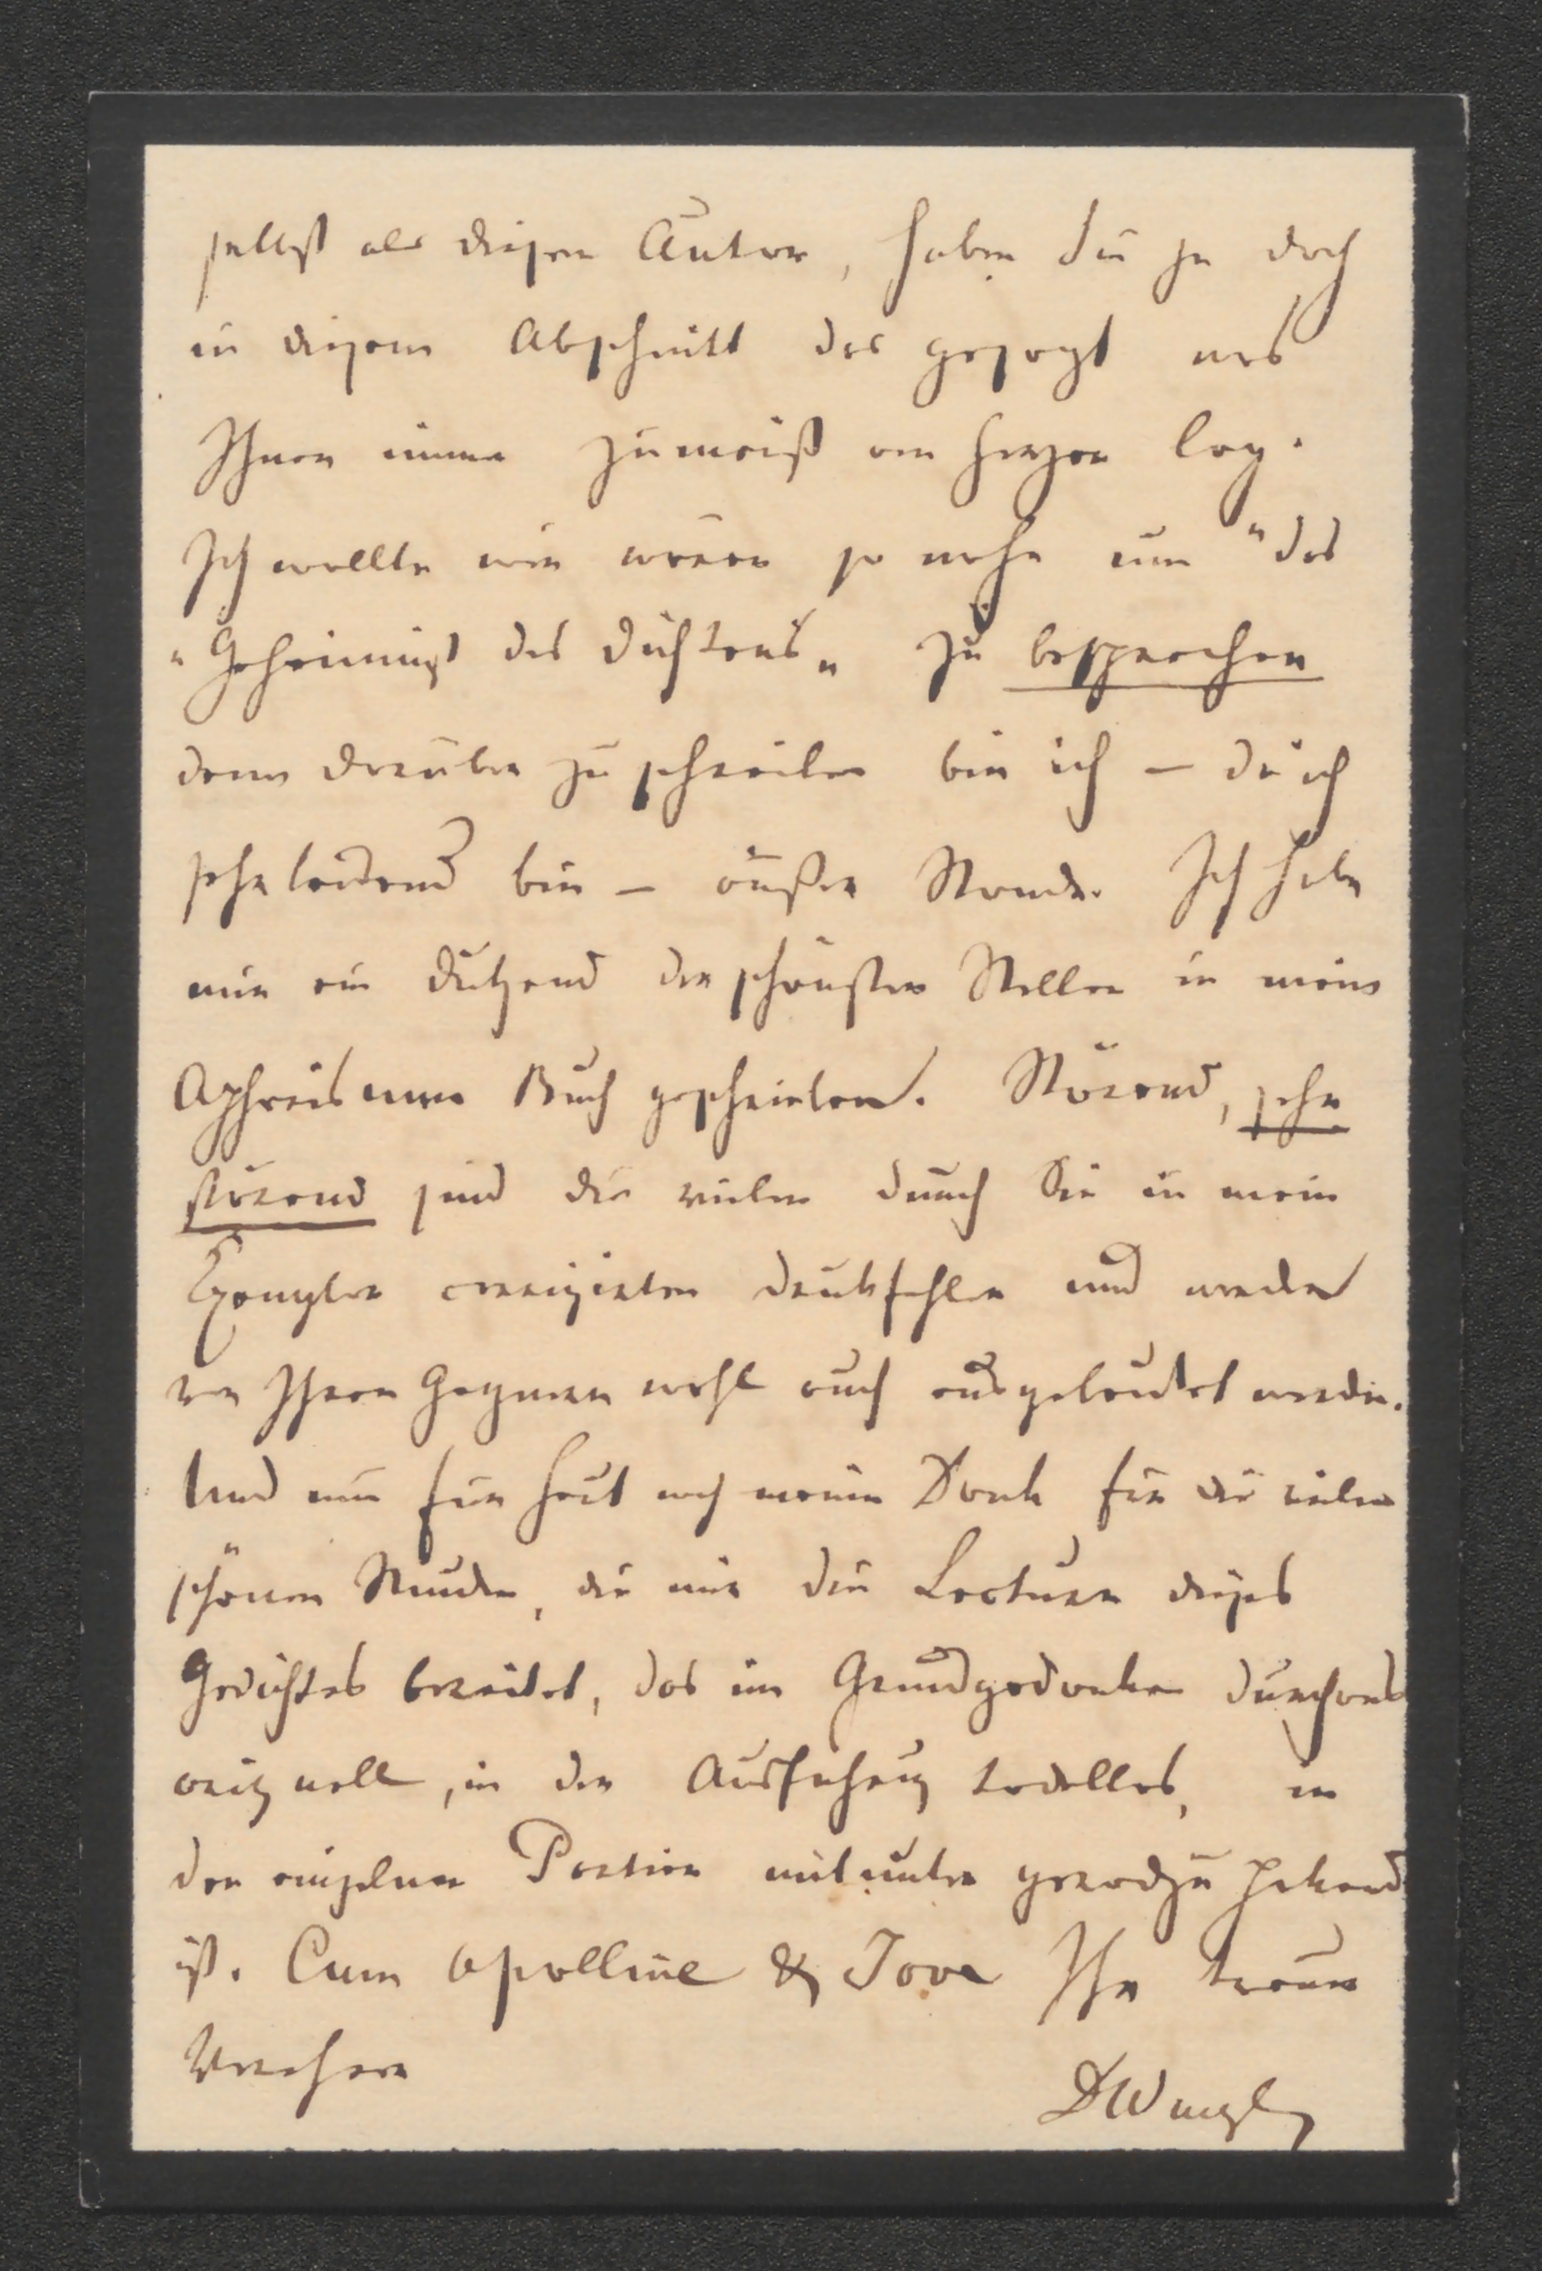 selbst als diesen Autor, haben Sie ja doch
in diesem Abschnitt das gesagt was
Ihnen immer zumeist am Herzen lag.
Ich wollte wir wären so nahe um "das
"Geheimniß des Dichtens" zu besprechen
denn darüber zu schreiben bin ich – da ich
sehr leidend bin – außer Stande. Ich habe
mir ein Dutzend der schönsten Stellen in mein
Aphorismen Buch geschrieben. Störend, sehr
störend sind die vielen durch Sie in mein
Exemplar corrigirten Druckfehler und werden
von Ihren Gegnern wohl auch ausgebeutet werden.
Und nun für heut noch meinen Dank für die vielen
schönen Stunden, die mir die Lecture dieses
Gedichtes bereitet, das im Grundgedanken durchaus
originell, in der Ausführung tadellos, in
den einzelnen Partien mitunter geradezu packend
ist. Cum Apolline & Jove Ihr treuer
Verehrer